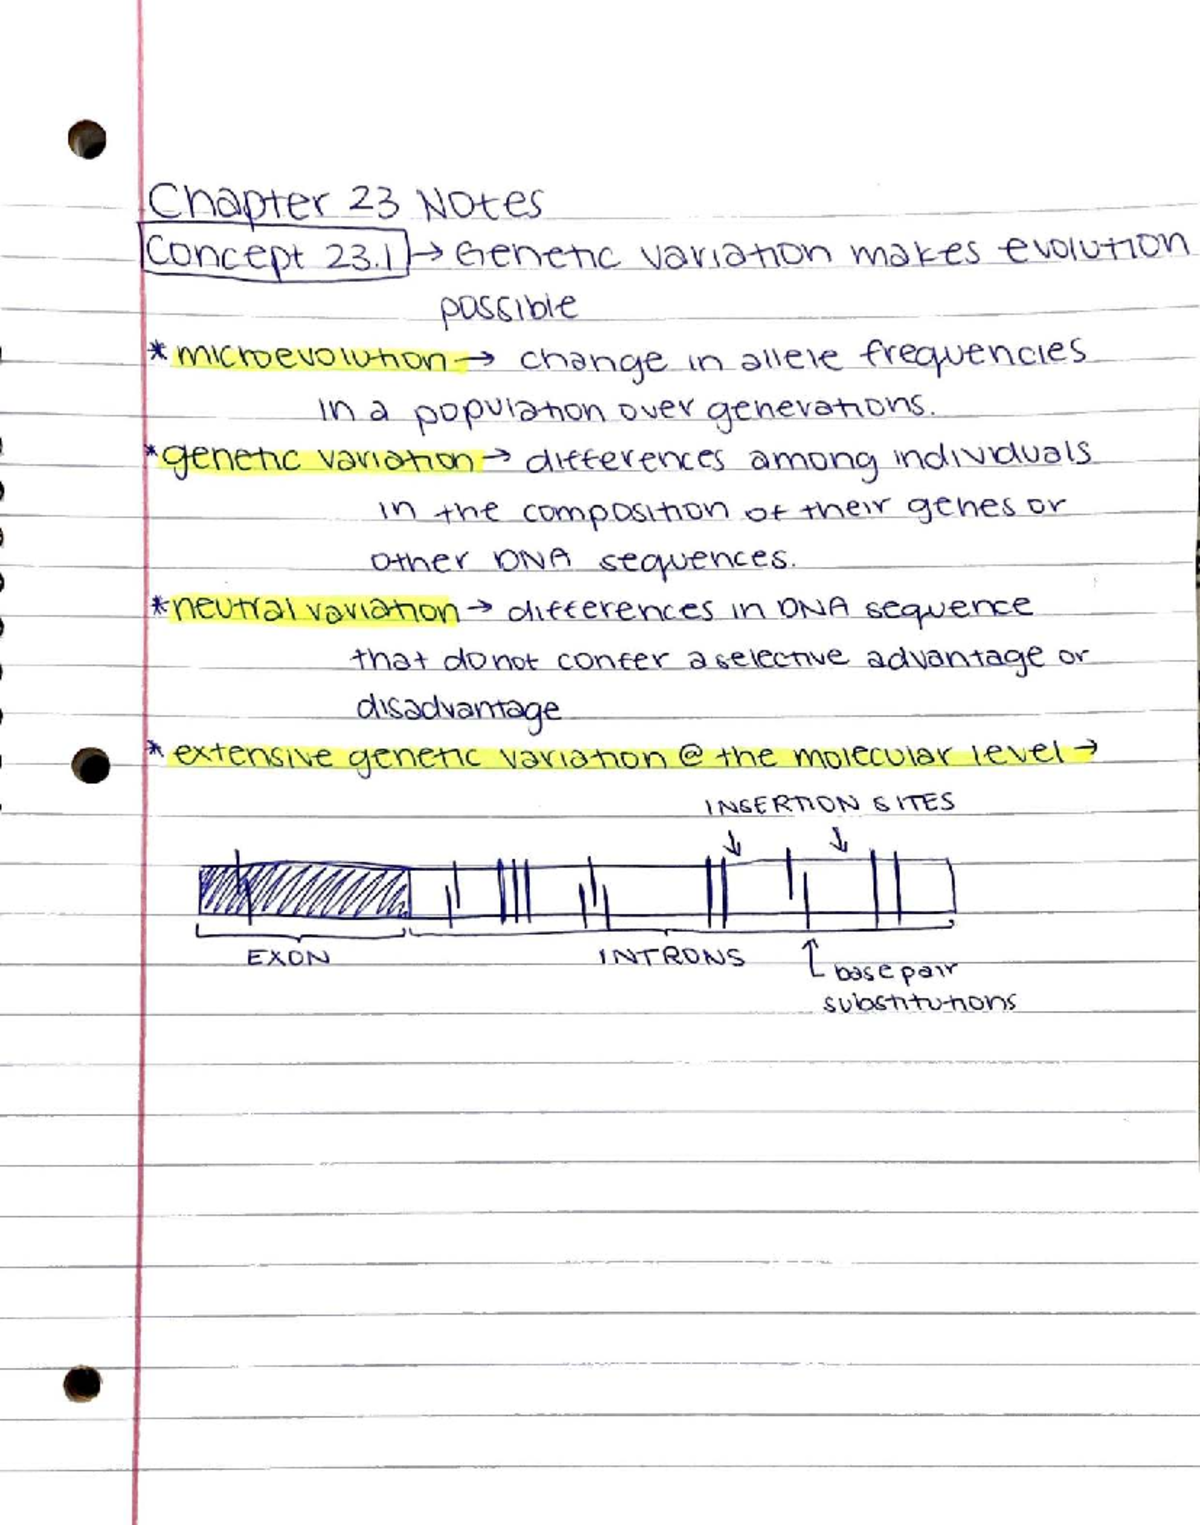 Chapter 23 Notes
Concept 23.1 → Genetic variation makes evolution
possible
* microevolution → change in allele frequencies
in a population over generations.
* genetic variation → differences among individuals
in the composition of their genes or
other DNA sequences.
* neutral variation → differences in DNA sequence
that do not confer a selective advantage or
disadvantage
* extensive genetic variation @ the molecular level →
INSERTION SITES
EXON INTRONS
base pair
substitutions